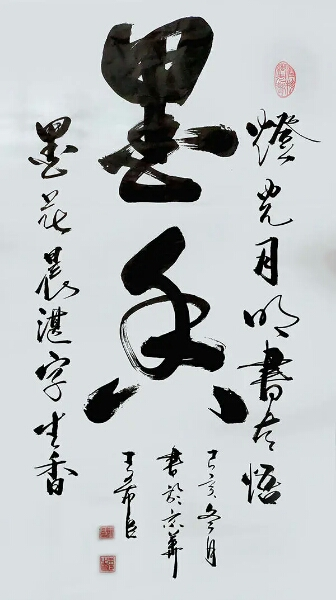 燈光月明書有悟
墨香
墨花晨湛字生香
己亥冬月
書於京華